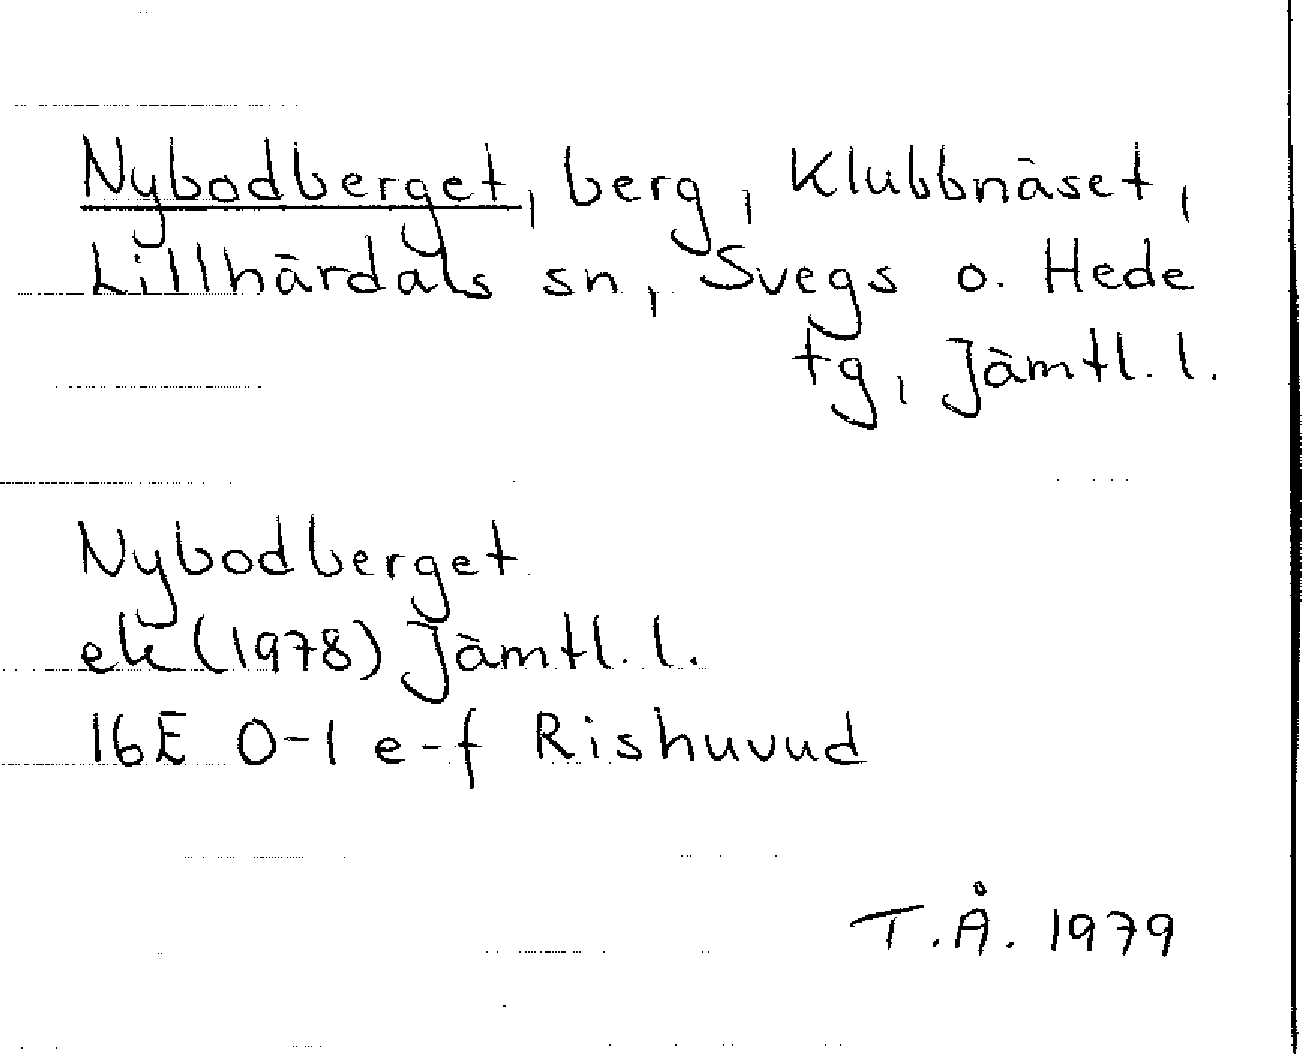 Nybodberget, berg, Klubbnäset,
Lillhärdals sn, Svegs o. Hede
tg, Jämtl. l.
Nybodberget
ek (1978) Jämtl. l.
16E 0-1 e-f Rishuvud
T.Å. 1979